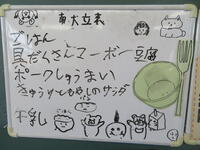 ごはん
具だくさんマーボー豆腐
ポークしゅうまい
きゅうりともやしのサラダ
牛乳